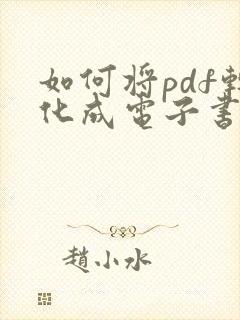 如何将pdf轉
化成電子書
趙小水